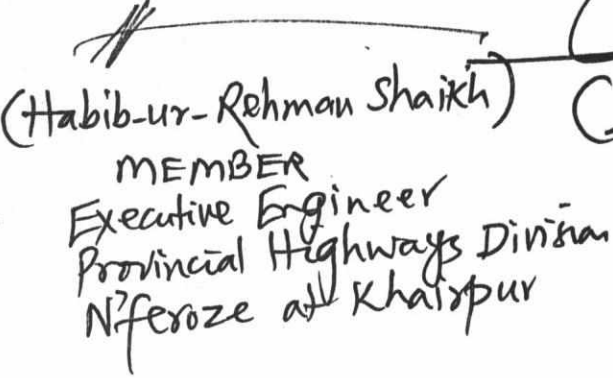 (Habib-ur-Rehman Shaikh)
MEMBER
Executive Engineer
Provincial Highways Division
N'feroze at Khairpur